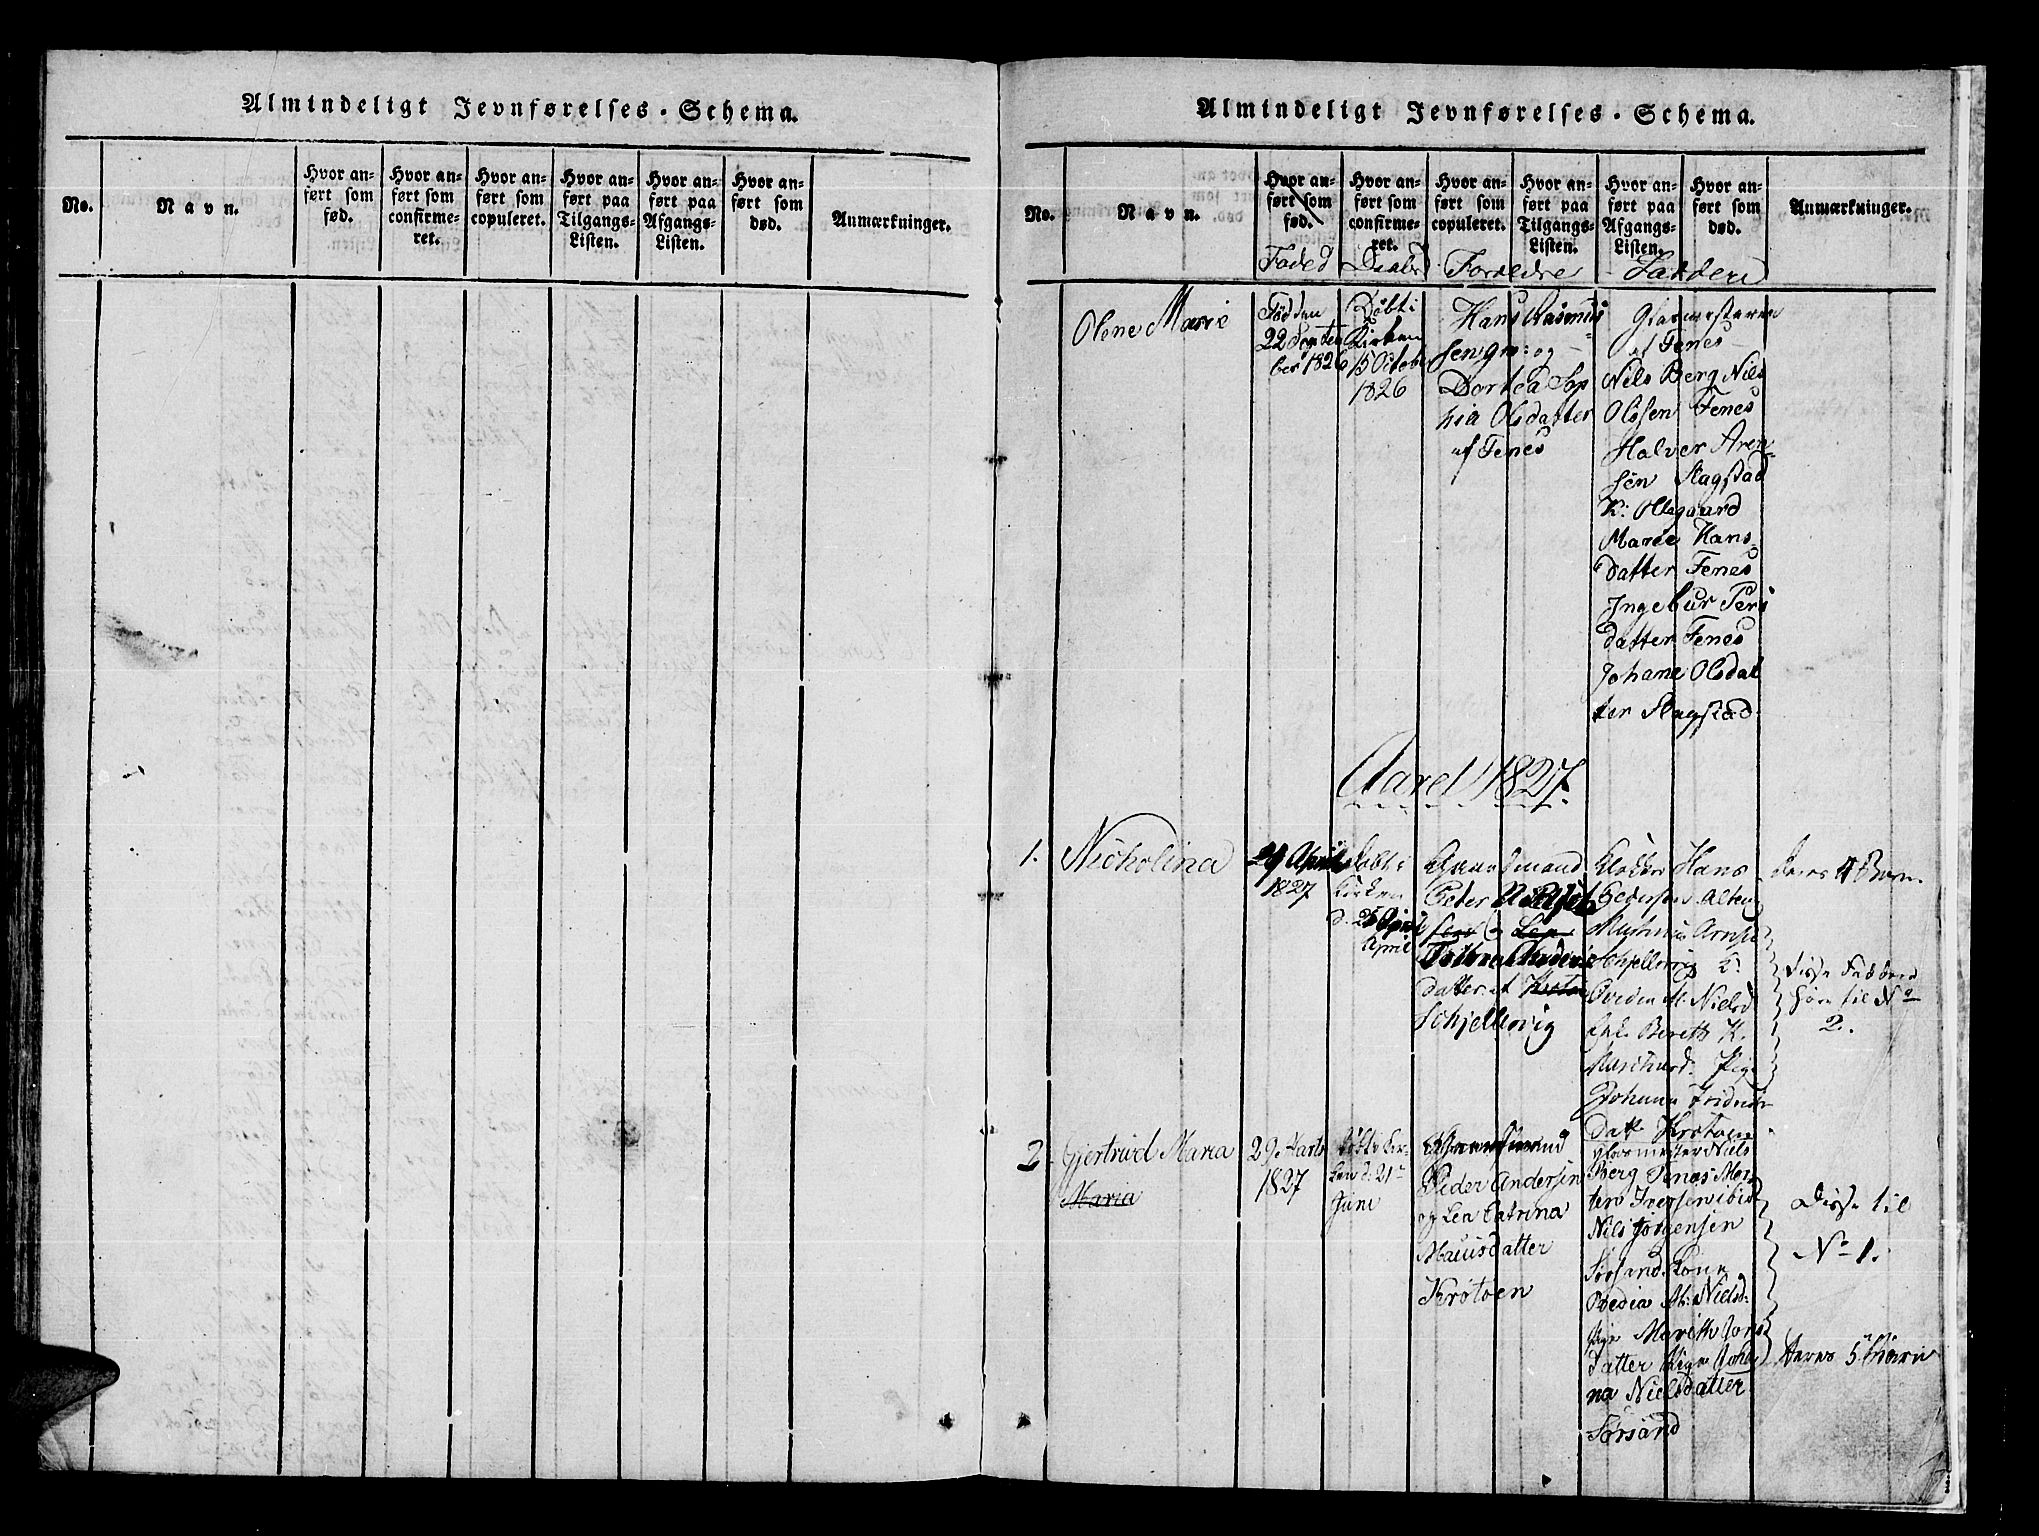 Almindeligt Jevnførelses-Schema.
No.
Navn.
Hvor an-
ført som
fød.
Hvor an-
ført som
confirme-
ret.
Hvor an-
ført som
copuleret.
Hvor an-
ført paa
Tilgangs-
Listen.
Hvor an-
ført paa
Afgangs-
Listen.
Hvor an-
ført som
død.
Anmærkninger.
Almindeligt Jevnførelses-Schema.
No.
Navn.
Hvor an-
ført som
fød.
Hvor an-
ført som
confirme-
ret.
Hvor an-
ført som
copuleret.
Hvor an-
ført paa
Tilgangs-
Listen.
Hvor an-
ført paa
Afgangs-
Listen.
Hvor an-
ført som
død.
Anmærkninger.
Forældre
Olene Marie
Fød den
22 Septem
ber 1826
Døbt i
Kirken
15 Octobr
1826
Hans Rasmus
sen gm: og
Dortea Sop
hia Olsdatter
af Fenes
Glasmesteren
af Fenes
Nils Berg Nils
Olssen Fenes
Halver Aren
sen Slagstad
K: Oltegaard
Marie Hans
datter Fenes
Ingebur Pers
datter Fenes
Johane Olsdat
ter Slagstad
Aaret 1827
1.
Nicholina
April
1827
Døbt i
Kirken
April
Peter
datter af
Schjellevig
Klokker Hans
Pedersen
Schjellevig K:
Nielsd
Berett K.
Pige
Johanna
Datt Krotoen
deres 4 Barn
disse Faddere
høre til No
2.
2
Gjertrud Maria
Maria
29 Marts
1827
døbt i Kir-
ken d: 21
Juni
Peder Andersen
og Lea Catrina
Mausdatter
Krotoen
Glasmester Niels
Berg Fenes Mor
ten Iversen ibid
Nils Jorgensen
Sørsand Kone
M: Nielsd:
Pige Marith Jons
datter Pige Joha
na Nielsdatter
Sørsand
Disse til
No 1.
deres 5